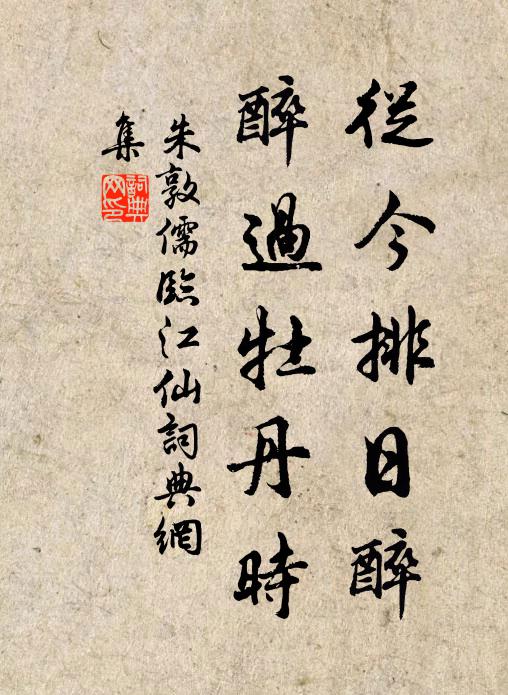 從今排日醉
醉過牡丹時
朱敦儒臨江仙詞典網
集
詞典
网印